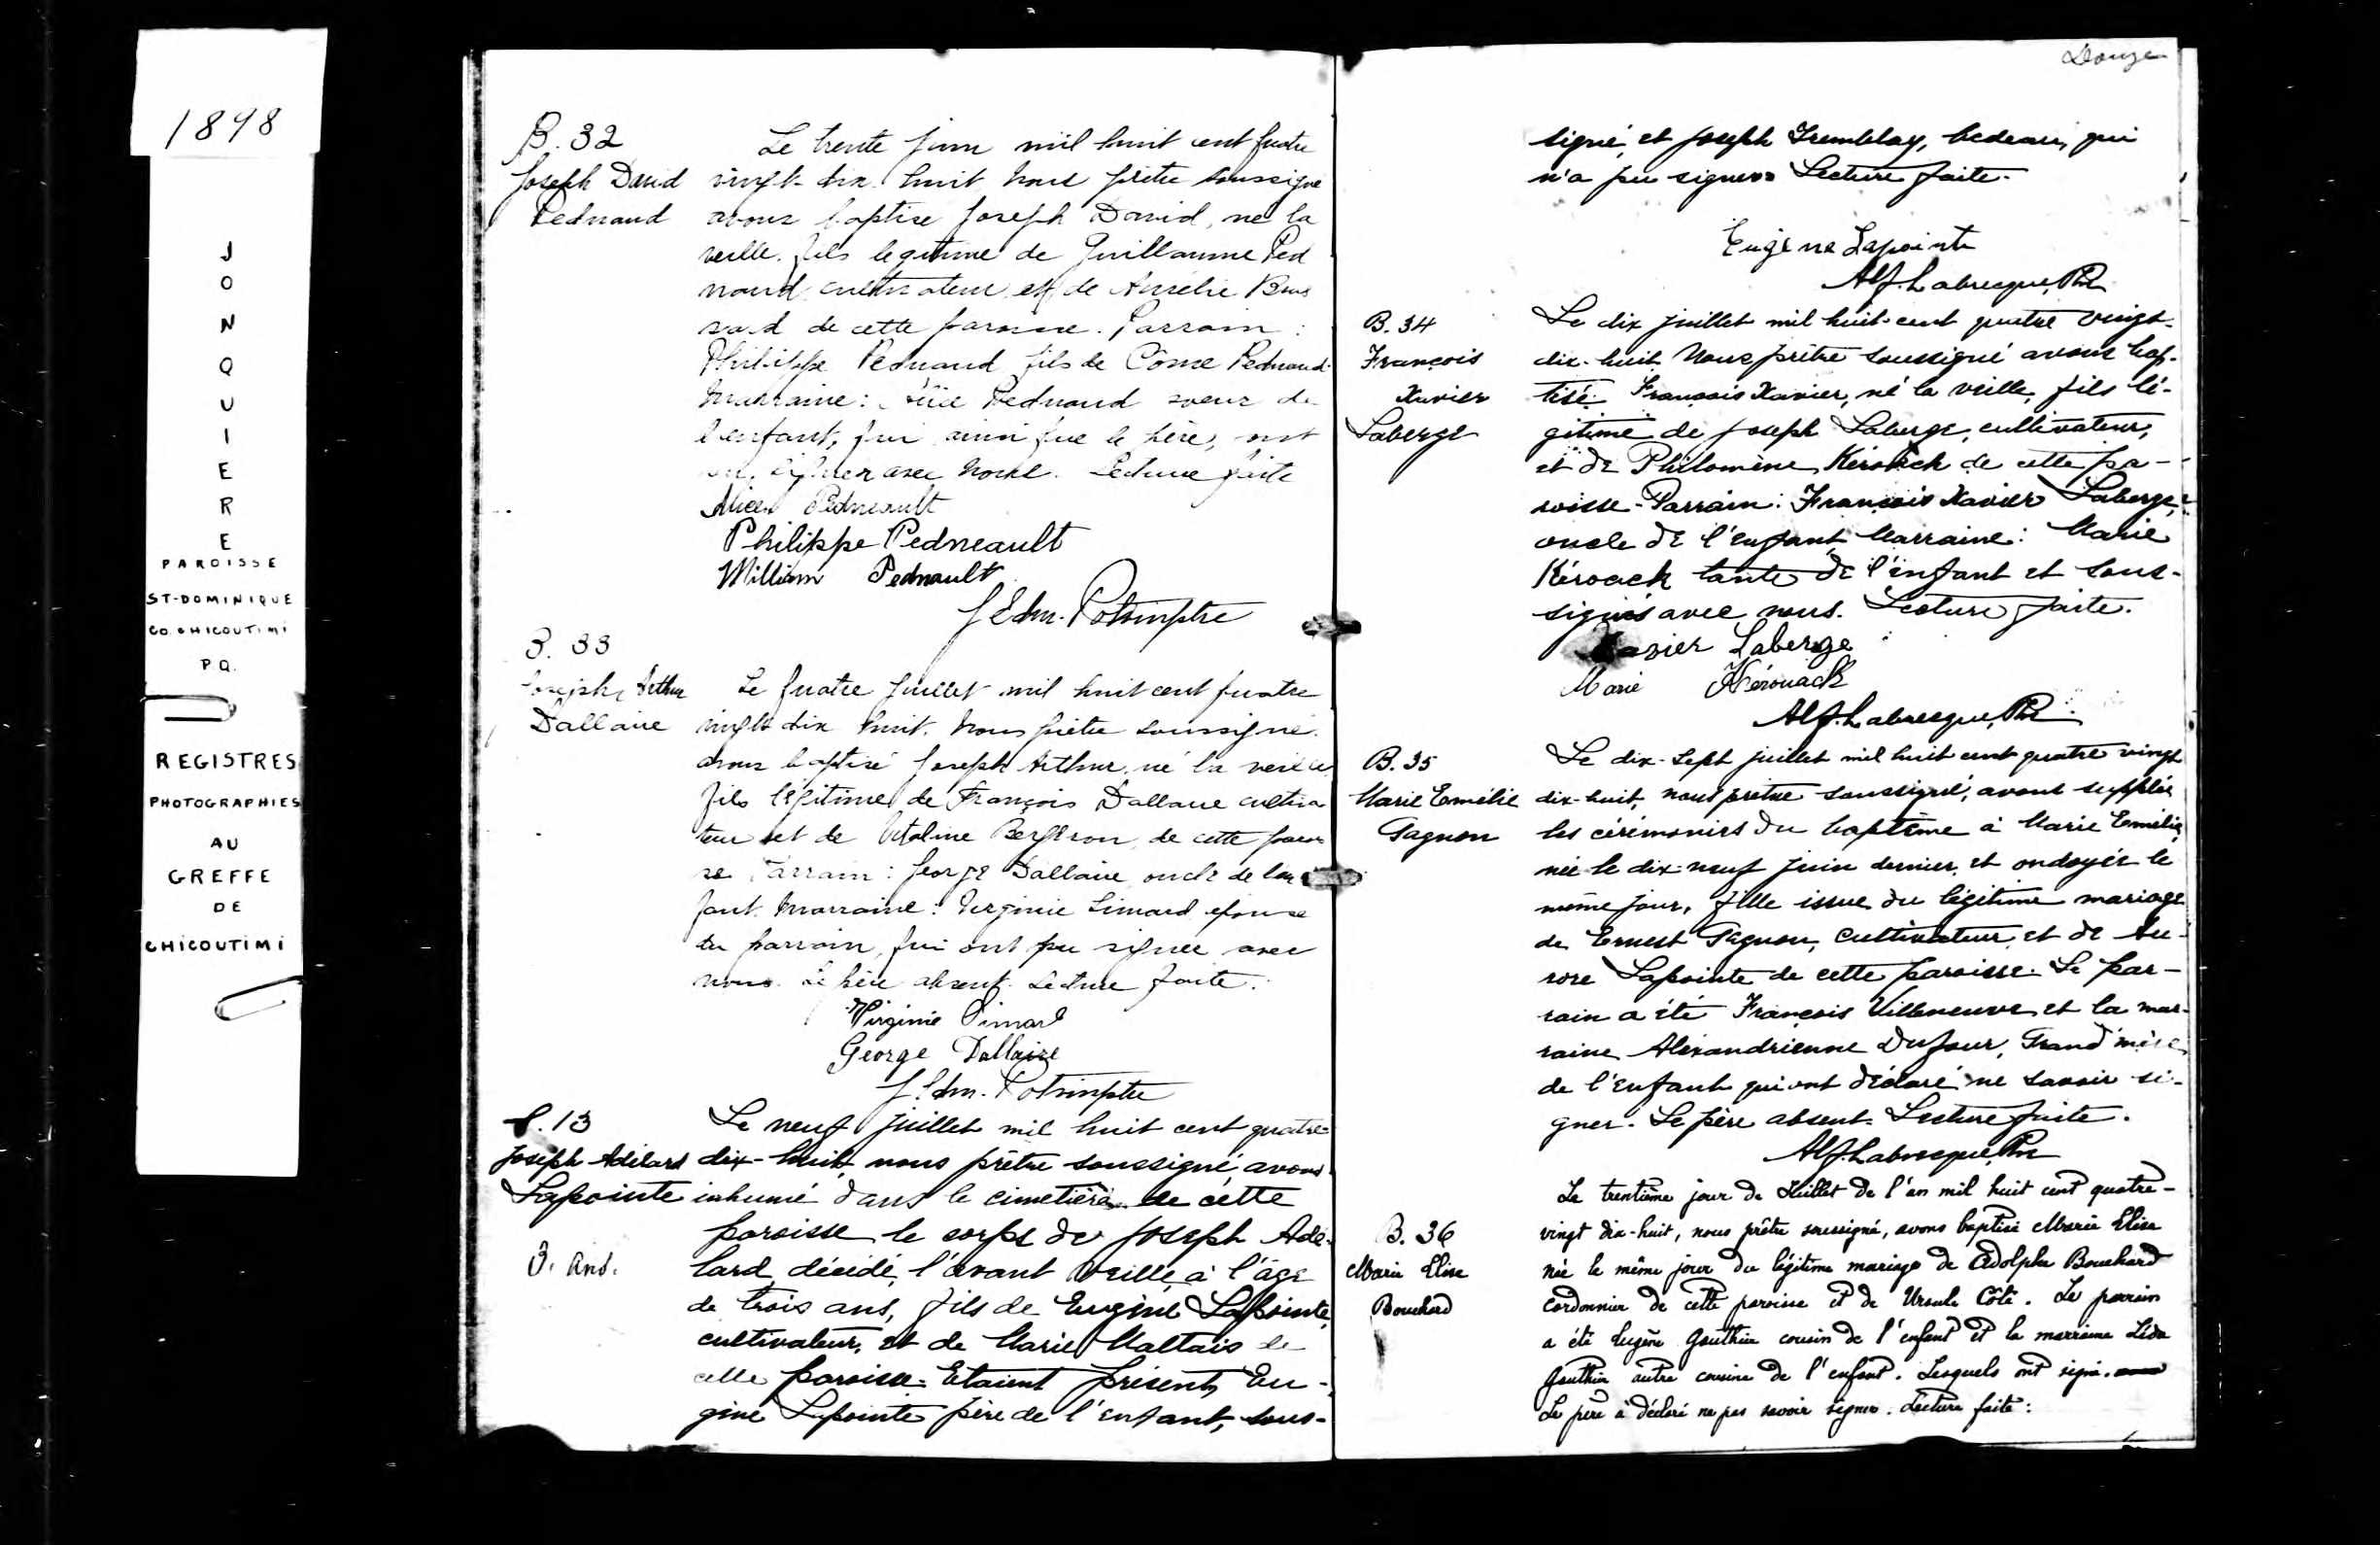 1898
JONQUIERE
PAROISSE
ST-DOMINIQUE
CO. CHICOUTIMI
P Q.
REGISTRES
PHOTOGRAPHIES
AU
GREFFE
DE
CHICOUTIMI
B. 32
Joseph David
Pednaud
Le trente juin mil huit cent quatre
vingt-dix huit Nous prêtre soussigné
avons baptise Joseph David, né la
veille, fils legitime de Guillaume Ped
naud cultivateur et de Aurélie
de cette paroisse. Parrain :
Philippe Pednaud fils de Côme Pednaud.
Marraine : Alice Pednaud soeur de
l'enfant, qui ainsi que le père, ont
signer avec nous. Lecture faite
Alice Pedneault
Philippe Pedneault
William Pednault
J Edm. Potvin ptre
B. 33
Joseph Arthur
Dallaire
Le quatre juillet mil huit cent quatre
vingt dix huit. Nous prêtre soussigné.
avons baptisé Joseph Arthur, né la veille
fils légitime de François Dallaire cultiva
teur et de Vitaline Bergeron, de cette parois
se Parrain : George Dallaire oncle de l'en
fant. Marraine : Virginie Simard épouse
du parrain, qui ont pu signer avec
nous. Le père absent. Lecture faite.
Virginie Simard
George Dallaire
J. Edm. Potvin ptre
S. 13
Joseph Adélard
Lapointe
3. ans.
Le neuf juillet mil huit cent quatre-
dix-huit, nous prêtre soussigné avons
inhumé dans le cimetière de cette
paroisse le corps de Joseph Adé-
lard, décédé, l'avant veille à l'âge
de trois ans, fils de Eugène Lapointe,
cultivateur, et de Marie Maltais de
cette paroisse. Etaient présents Eu-
gène Lapointe père de l'enfant, sous-
Douze
signé, et Joseph Tremblay, bedeau, qui
n'a pu signer. Lecture faite.
Eugène Lapointe
Alf. Labrecque, Ptre
B. 34
François
Xavier
Laberge
Le dix juillet mil huit-cent quatre vingt-
dix-huit. Nous prêtre soussigné avons bap-
tisé François Xavier, né la veille, fils lé-
gitime de Joseph Laberge, cultivateur,
et de Philomène Kéroack de cette pa-
roisse. Parrain : François Xavier Laberge,
oncle de l'enfant, Marraine : Marie
Kéroack tante de l'enfant et sous-
signés avec nous. Lecture faite.
Xavier Laberge
Marie Kérouack
Alf. Labrecque, Ptre
B. 35
Marie Emélie
Gagnon
Le dix-sept juillet mil huit cent quatre vingt
dix-huit, nous prêtre soussigné, avons supplée
les cérémonies du baptême à Marie Emélie,
née le dix-neuf juin dernier, et ondoyée le
même jour, fille issue du légitime mariage
de Ernest Gagnon, cultivateur, et de Au-
rore Lapointe de cette paroisse. Le par-
rain a été François Villeneuve et la mar-
raine Alexandrienne Dufour, Grand'mère
de l'enfant qui ont déclaré ne savoir si-
gner. Le père absent. Lecture faite.
Alf. Labrecque, Ptre
B. 36
Marie Elise
Bouchard
Le trentième jour de Juillet de l'an mil huit cent quatre-
vingt dix-huit, nous prêtre soussigné, avons baptisé Marie Elise
née le même jour du légitime mariage de Adolphe Bouchard
cordonnier de cette paroisse et de Ursule Côté. Le parrain
a été Eugène Gauthier cousin de l'enfant et la marraine Léda
Gauthier autre cousine de l'enfant. Lesquels ont signé.
Le père a déclaré ne pas savoir signer. Lecture faite :